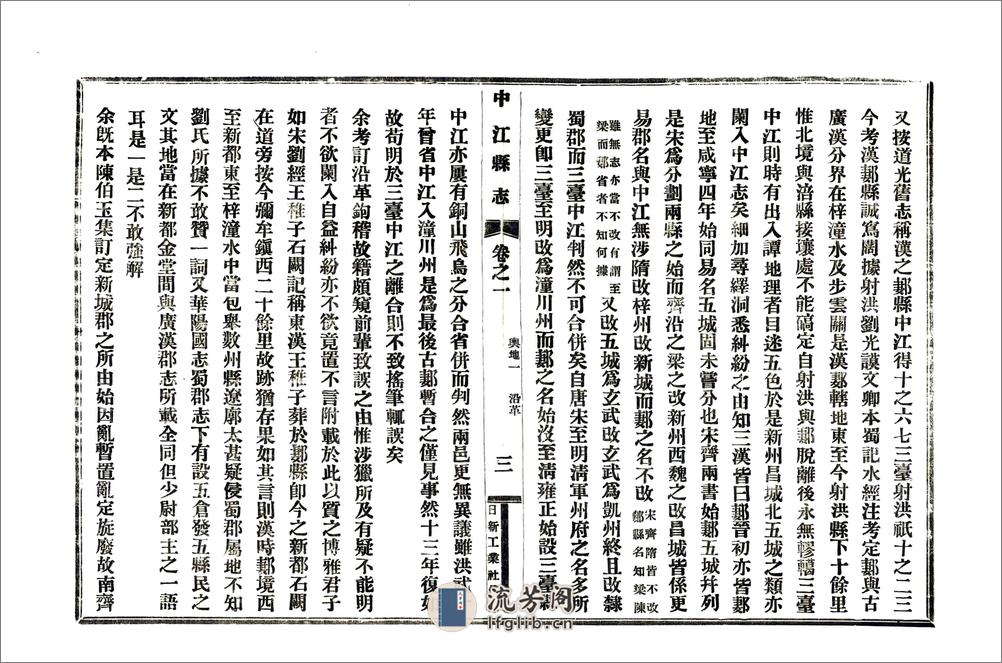 又按道光舊志稱漢之郪縣中江得十之六七三臺射洪祇十之二三
今考漢郪縣誠寫闊據射洪劉光謨文卿本蜀記水經注考定郪與古
廣漢分界在梓潼水及步雲關是漢郪轄地東至今射洪縣下十餘里
惟北境與涪縣接壤處不能碻定自射洪與郪脫離後永無轇轕三臺
中江則時有出入譚地理者目迷五色於是新州昌城北五城之類亦
闌入中江志矣細加尋繹洞悉糾紛之由知三漢皆曰郪晉初亦皆郪
地至咸寧四年始同易名五城固未嘗分也宋齊兩書始郪五城幷列
是宋爲分劃兩縣之始而齊沿之梁之改新州西魏之改昌城皆係更
易郡名與中江無涉隋改梓州改新城而郪之名不改宋齊隋皆不改郪縣名知梁陳
雖無志亦當不改有謂至梁而郪省者不知何據又改五城爲玄武改玄武爲凱州終且改隸
蜀郡而三臺中江判然不可合併矣自唐宋至明清軍州府之名多所
變更卽三臺至明改爲潼川州而郪之名始沒至清雍正始設三臺縣
中江縣志 卷之一 輿地一 沿革 三 日新工業社
中江亦屢有銅山飛烏之分合省併而判然兩邑更無異議雖洪武
年曾省中江入潼川州是爲最後古郪暫合之僅見事然十三年復如
故苟明於三臺中江之離合則不致搖筆輒誤矣
余考訂沿革鉤稽故籍頗窺前輩致誤之由惟涉獵所及有疑不能明
者不欲闌入自益糾紛亦不欲竟置不言附載於此以質之博雅君子
如宋劉經王稚子石闕記稱東漢王稚子葬於郪縣卽今之新都石闕
在道旁按今彌牟鎭西二十餘里故跡猶存果如其言則漢時郪境西
至新都東至梓潼水中當包舉數州縣遼廓太甚疑侵蜀郡屬地不知
劉氏所據不敢贊一詞又華陽國志蜀郡志下有設五倉發五縣民之
文其地當在新都金堂間與廣漢郡志所載全同但少尉部主之一語
耳是一是二不敢強解
余旣本陳伯玉集訂定新城郡之所由始因亂暫置亂定旋廢故南齊
流芳閣
lfglib.cn